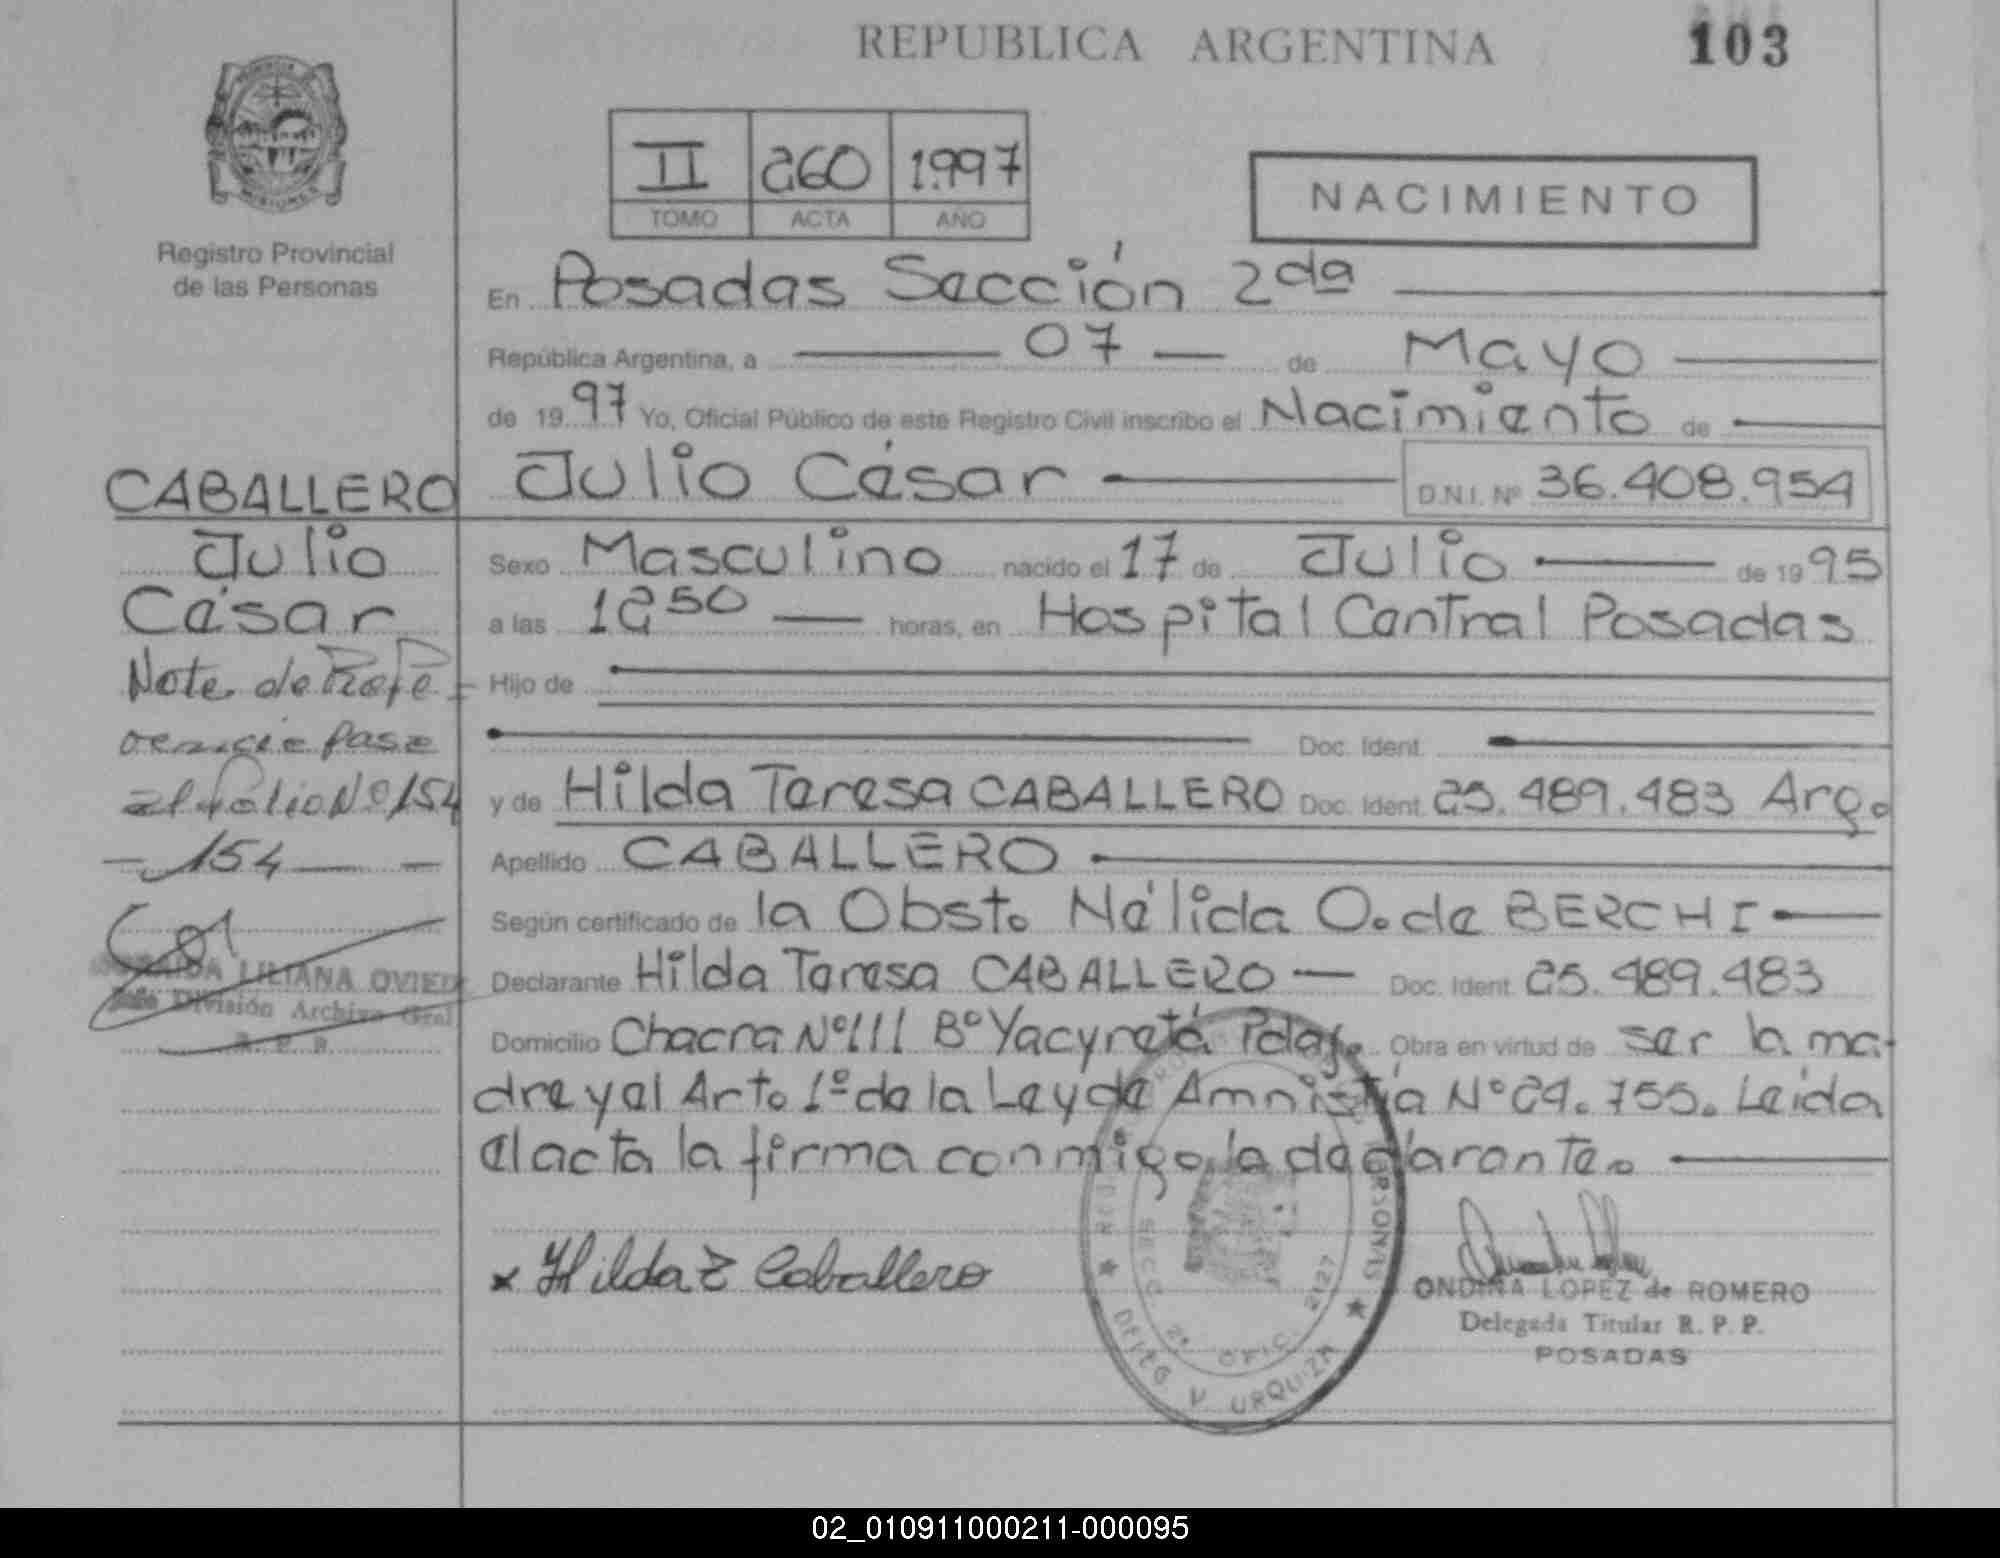 REPUBLICA ARGENTINA
103
Registro Provincial
de las Personas
II 260 1.997
TOMO ACTA AÑO
NACIMIENTO
En Posadas Sección 2da
República Argentina, a 07 de Mayo
de 1997 Yo, Oficial Público de este Registro Civil inscribo el Nacimiento de
Julio César D.N.I. Nº 36.408.954
Sexo Masculino nacido el 17 de Julio de 1995
a las 12 50 horas, en Hospital Central Posadas
Hijo de
Doc. Ident.
y de Hilda Teresa CABALLERO Doc. Ident. 25.489.483 Arg.
Apellido CABALLERO
Según certificado de la Obst. Nélida O. de BERCHI
Declarante Hilda Teresa CABALLERO Doc. Ident. 25.489.483
Domicilio Chacra Nº 111 Bº Yacyretá Pdas. Obra en virtud de ser la ma-
dre y al Art. 1º de la Ley de Amnistía Nº 24.755. Leída
el acta la firma conmigo la declarante.
CABALLERO
Julio
César
Nota de Refe-
rencia pasa
al folio Nº 154
- 154 -
LILIANA OVIED
División Archivo Gral
R. P. P.
x Hilda T Caballero
PERSONAS
SECC. 2ª OFIC. 2127
DFITG V URQUIZA
ONDINA LOPEZ de ROMERO
Delegada Titular R. P. P.
POSADAS
02_010911000211-000095